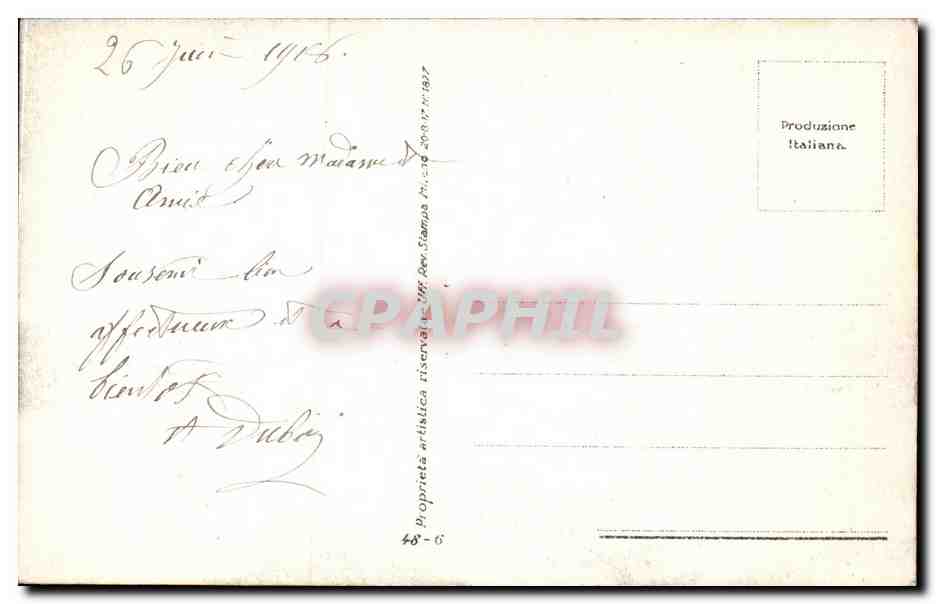 26 Juin 1916.
Bien chère Madame et
Amie
Souvenir bien
affectueux et à
bientôt
A Dubois
Proprietà artistica riservata - Uff. Rev. Stampa Milano 20-9-17 N. 1827
48-6
Produzione
Italiana
CPAPHIL